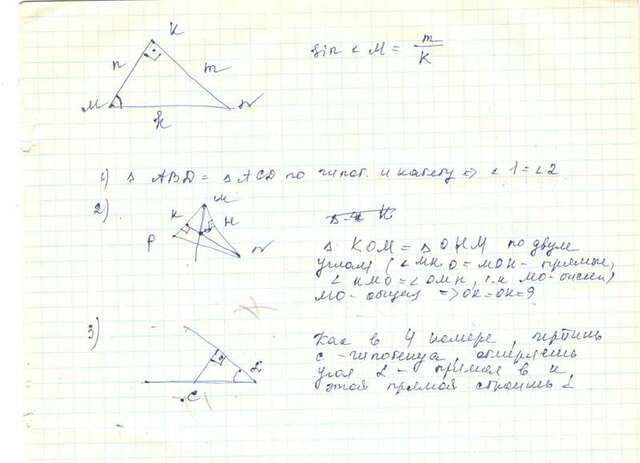 K
n
m
M
N
k
sin < M = m/K
1) Δ ABD = Δ ACD по гипот. и катету => < 1 = < 2
2)
M
K
H
P
N
Δ KOM = Δ OHM по двум
углам (< MKO = MOH - прямые,
< KMO = < OMH, т.к MO - биссек)
MO - общая => OK = OH = 9
3)
C
L
Как в 4 номере, чертишь
C - гипотенуза, отмеряешь
угол L - прямая в и
этой прямой строишь L